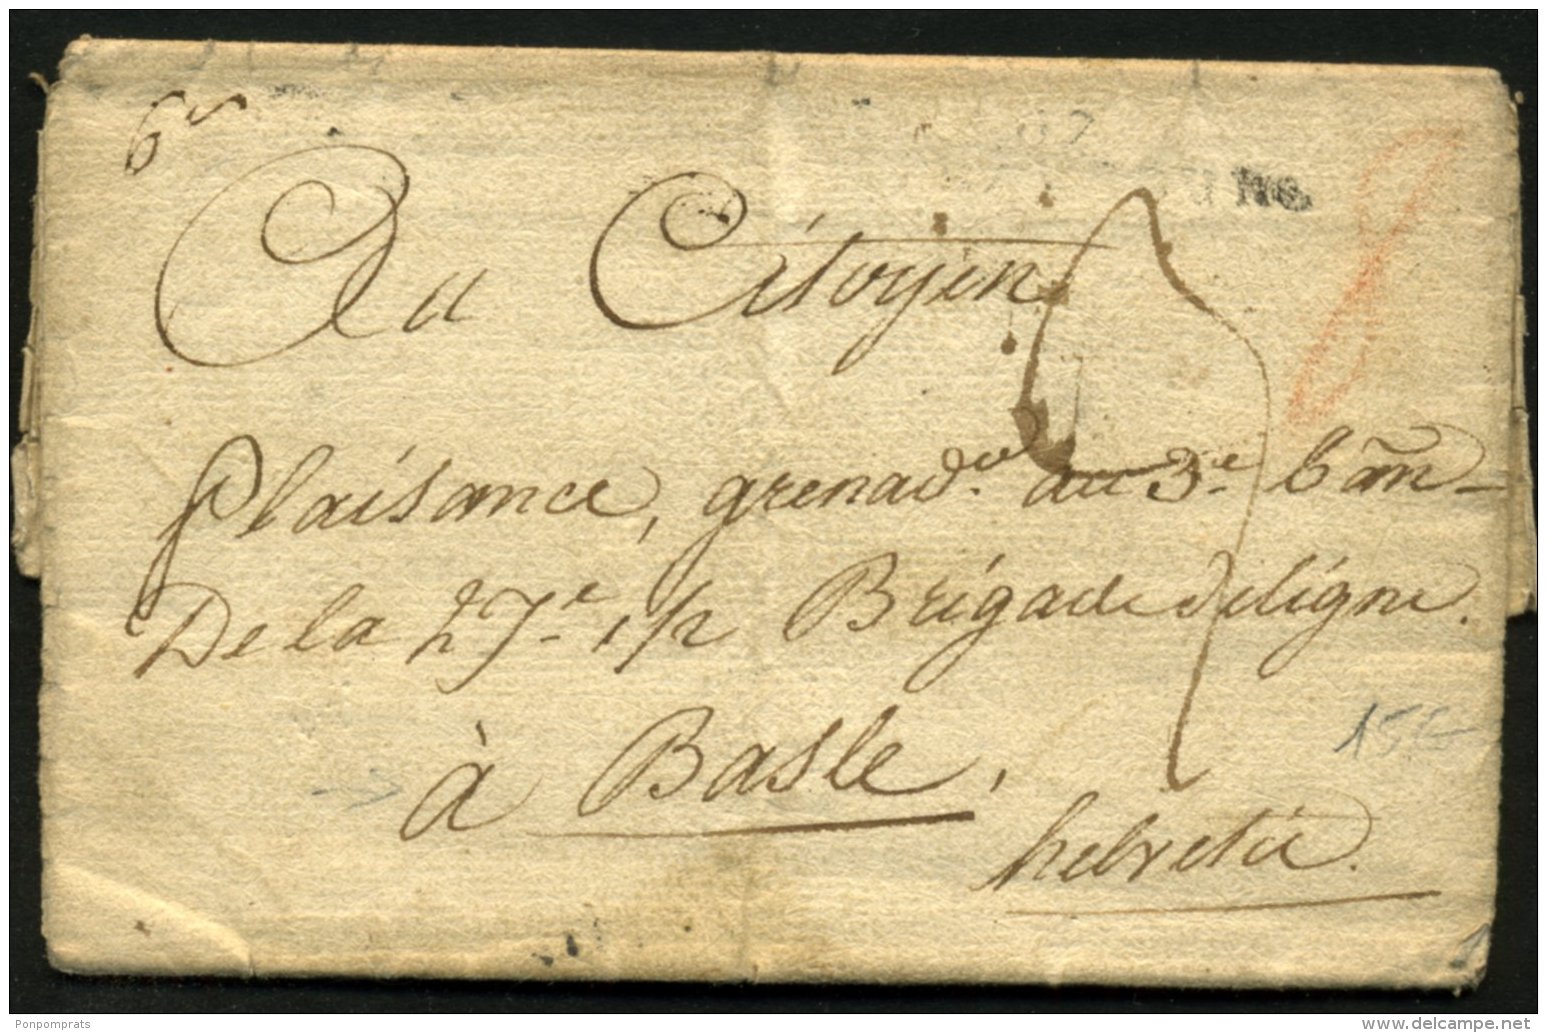 Au Citoyen
Plaisance, grenad.er au 3.e b.on
De la 27.e 1/2 Brigade deligne.
à Basle,
helvetie.
Ponpomprats
delcampe.net